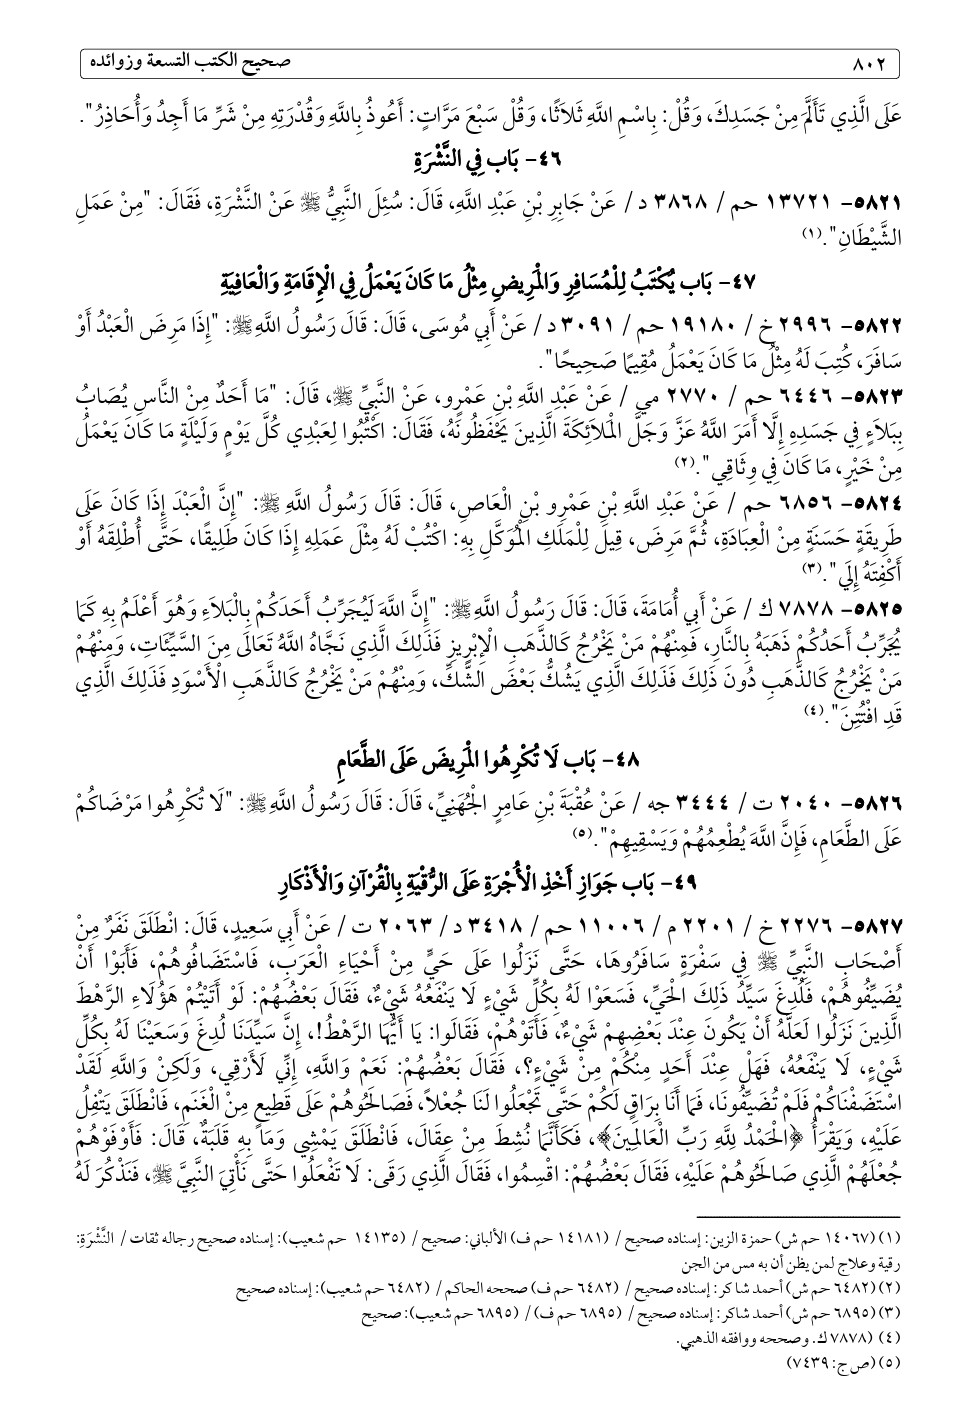 ٨٠٢ صحيح الكتب التسعة وزوائده
عَلَى الَّذِي تَأَلَّمَ مِنْ جَسَدِكَ، وَقُلْ: بِاسْمِ اللَّهِ ثَلَاثًا، وَقُلْ سَبْعَ مَرَّاتٍ: أَعُوذُ بِاللَّهِ وَقُدْرَتِهِ مِنْ شَرِّ مَا أَجِدُ وَأُحَاذِرُ".
٤٦- بَاب فِي النَّشْرَةِ
٥٨٢١- ١٣٧٢١ حم / ٣٨٦٨ د / عَنْ جَابِرِ بْنِ عَبْدِ اللَّهِ، قَالَ: سُئِلَ النَّبِيُّ ﷺ عَنْ النَّشْرَةِ، فَقَالَ: "مِنْ عَمَلِ
الشَّيْطَانِ".(١)
٤٧- بَاب يُكْتَبُ لِلْمُسَافِرِ وَالْمَرِيضِ مِثْلُ مَا كَانَ يَعْمَلُ فِي الْإِقَامَةِ وَالْعَافِيَةِ
٥٨٢٢- ٢٩٩٦ خ / ١٩١٨٠ حم / ٣٠٩١ د / عَنْ أَبِي مُوسَى، قَالَ: قَالَ رَسُولُ اللَّهِ ﷺ: "إِذَا مَرِضَ الْعَبْدُ أَوْ
سَافَرَ، كُتِبَ لَهُ مِثْلُ مَا كَانَ يَعْمَلُ مُقِيمًا صَحِيحًا".
٥٨٢٣- ٦٤٤٦ حم / ٢٧٧٠ مي / عَنْ عَبْدِ اللَّهِ بْنِ عَمْرٍو، عَنْ النَّبِيِّ ﷺ، قَالَ: "مَا أَحَدٌ مِنْ النَّاسِ يُصَابُ
بِبَلَاءٍ فِي جَسَدِهِ إِلَّا أَمَرَ اللَّهُ عَزَّ وَجَلَّ الْمَلَائِكَةَ الَّذِينَ يَحْفَظُونَهُ، فَقَالَ: اكْتُبُوا لِعَبْدِي كُلَّ يَوْمٍ وَلَيْلَةٍ مَا كَانَ يَعْمَلُ
مِنْ خَيْرٍ، مَا كَانَ فِي وِثَاقِي".(٢)
٥٨٢٤- ٦٨٥٦ حم / عَنْ عَبْدِ اللَّهِ بْنِ عَمْرِو بْنِ الْعَاصِ، قَالَ: قَالَ رَسُولُ اللَّهِ ﷺ: "إِنَّ الْعَبْدَ إِذَا كَانَ عَلَى
طَرِيقَةٍ حَسَنَةٍ مِنْ الْعِبَادَةِ، ثُمَّ مَرِضَ، قِيلَ لِلْمَلَكِ الْمُوَكَّلِ بِهِ: اكْتُبْ لَهُ مِثْلَ عَمَلِهِ إِذَا كَانَ طَلِيقًا، حَتَّى أُطْلِقَهُ أَوْ
أَكْفِتَهُ إِلَيَ".(٣)
٥٨٢٥- ٧٨٧٨ ك / عَنْ أَبِي أُمَامَةَ، قَالَ: قَالَ رَسُولُ اللَّهِ ﷺ: "إِنَّ اللَّهَ لَيُجَرِّبُ أَحَدَكُمْ بِالْبَلَاءِ وَهُوَ أَعْلَمُ بِهِ كَمَا
يُجَرِّبُ أَحَدُكُمْ ذَهَبَهُ بِالنَّارِ، فَمِنْهُمْ مَنْ يَخْرُجُ كَالذَّهَبِ الْإِبْرِيزِ فَذَلِكَ الَّذِي نَجَّاهُ اللَّهُ تَعَالَى مِنَ السَّيِّئَاتِ، وَمِنْهُمْ
مَنْ يَخْرُجُ كَالذَّهَبِ دُونَ ذَلِكَ فَذَلِكَ الَّذِي يَشُكُّ بَعْضَ الشَّكِّ، وَمِنْهُمْ مَنْ يَخْرُجُ كَالذَّهَبِ الْأَسْوَدِ فَذَلِكَ الَّذِي
قَدِ افْتُتِنَ".(٤)
٤٨- بَاب لَا تُكْرِهُوا الْمَرِيضَ عَلَى الطَّعَامِ
٥٨٢٦- ٢٠٤٠ ت / ٣٤٤٤ جه / عَنْ عُقْبَةَ بْنِ عَامِرٍ الْجُهَنِيِّ، قَالَ: قَالَ رَسُولُ اللَّهِ ﷺ: "لَا تُكْرِهُوا مَرْضَاكُمْ
عَلَى الطَّعَامِ، فَإِنَّ اللَّهَ يُطْعِمُهُمْ وَيَسْقِيهِمْ".(٥)
٤٩- بَاب جَوَازِ أَخْذِ الْأُجْرَةِ عَلَى الرُّقْيَةِ بِالْقُرْآنِ وَالْأَذْكَارِ
٥٨٢٧- ٢٢٧٦ خ / ٢٢٠١ م / ١١٠٠٦ حم / ٣٤١٨ د / ٢٠٦٣ ت / عَنْ أَبِي سَعِيدٍ، قَالَ: انْطَلَقَ نَفَرٌ مِنْ
أَصْحَابِ النَّبِيِّ ﷺ فِي سَفْرَةٍ سَافَرُوهَا، حَتَّى نَزَلُوا عَلَى حَيٍّ مِنْ أَحْيَاءِ الْعَرَبِ، فَاسْتَضَافُوهُمْ، فَأَبَوْا أَنْ
يُضَيِّفُوهُمْ، فَلُدِغَ سَيِّدُ ذَلِكَ الْحَيِّ، فَسَعَوْا لَهُ بِكُلِّ شَيْءٍ لَا يَنْفَعُهُ شَيْءٌ، فَقَالَ بَعْضُهُمْ: لَوْ أَتَيْتُمْ هَؤُلَاءِ الرَّهْطَ
الَّذِينَ نَزَلُوا لَعَلَّهُ أَنْ يَكُونَ عِنْدَ بَعْضِهِمْ شَيْءٌ، فَأَتَوْهُمْ، فَقَالُوا: يَا أَيُّهَا الرَّهْطُ!، إِنَّ سَيِّدَنَا لُدِغَ وَسَعَيْنَا لَهُ بِكُلِّ
شَيْءٍ، لَا يَنْفَعُهُ، فَهَلْ عِنْدَ أَحَدٍ مِنْكُمْ مِنْ شَيْءٍ؟، فَقَالَ بَعْضُهُمْ: نَعَمْ وَاللَّهِ، إِنِّي لَأَرْقِي، وَلَكِنْ وَاللَّهِ لَقَدْ
اسْتَضَفْنَاكُمْ فَلَمْ تُضَيِّفُونَا، فَمَا أَنَا بِرَاقٍ لَكُمْ حَتَّى تَجْعَلُوا لَنَا جُعْلًا، فَصَالَحُوهُمْ عَلَى قَطِيعٍ مِنْ الْغَنَمِ، فَانْطَلَقَ يَتْفِلُ
عَلَيْهِ، وَيَقْرَأُ ﴿الْحَمْدُ لِلَّهِ رَبِّ الْعَالَمِينَ﴾، فَكَأَنَّمَا نُشِطَ مِنْ عِقَالٍ، فَانْطَلَقَ يَمْشِي وَمَا بِهِ قَلَبَةٌ، قَالَ: فَأَوْفَوْهُمْ
جُعْلَهُمْ الَّذِي صَالَحُوهُمْ عَلَيْهِ، فَقَالَ بَعْضُهُمْ: اقْسِمُوا، فَقَالَ الَّذِي رَقَى: لَا تَفْعَلُوا حَتَّى نَأْتِيَ النَّبِيَّ ﷺ، فَنَذْكُرَ لَهُ
(١) (١٤٠٦٧ حم ش) حمزة الزين: إسناده صحيح / (١٤١٨١ حم ف) الألباني: صحيح / (١٤١٣٥ حم شعيب): إسناده صحيح رجاله ثقات / النَّشْرَةِ:
رقية وعلاج لمن يظن أن به مس من الجن
(٢) (٦٤٨٢ حم ش) أحمد شاكر: إسناده صحيح / (٦٤٨٢ حم ف) صححه الحاكم / (٦٤٨٢ حم شعيب): إسناده صحيح
(٣) (٦٨٩٥ حم ش) أحمد شاكر: إسناده صحيح / (٦٨٩٥ حم ف) / (٦٨٩٥ حم شعيب): صحيح
(٤) (٧٨٧٨ ك. وصححه ووافقه الذهبي.
(٥) (ص ج: ٧٤٣٩)